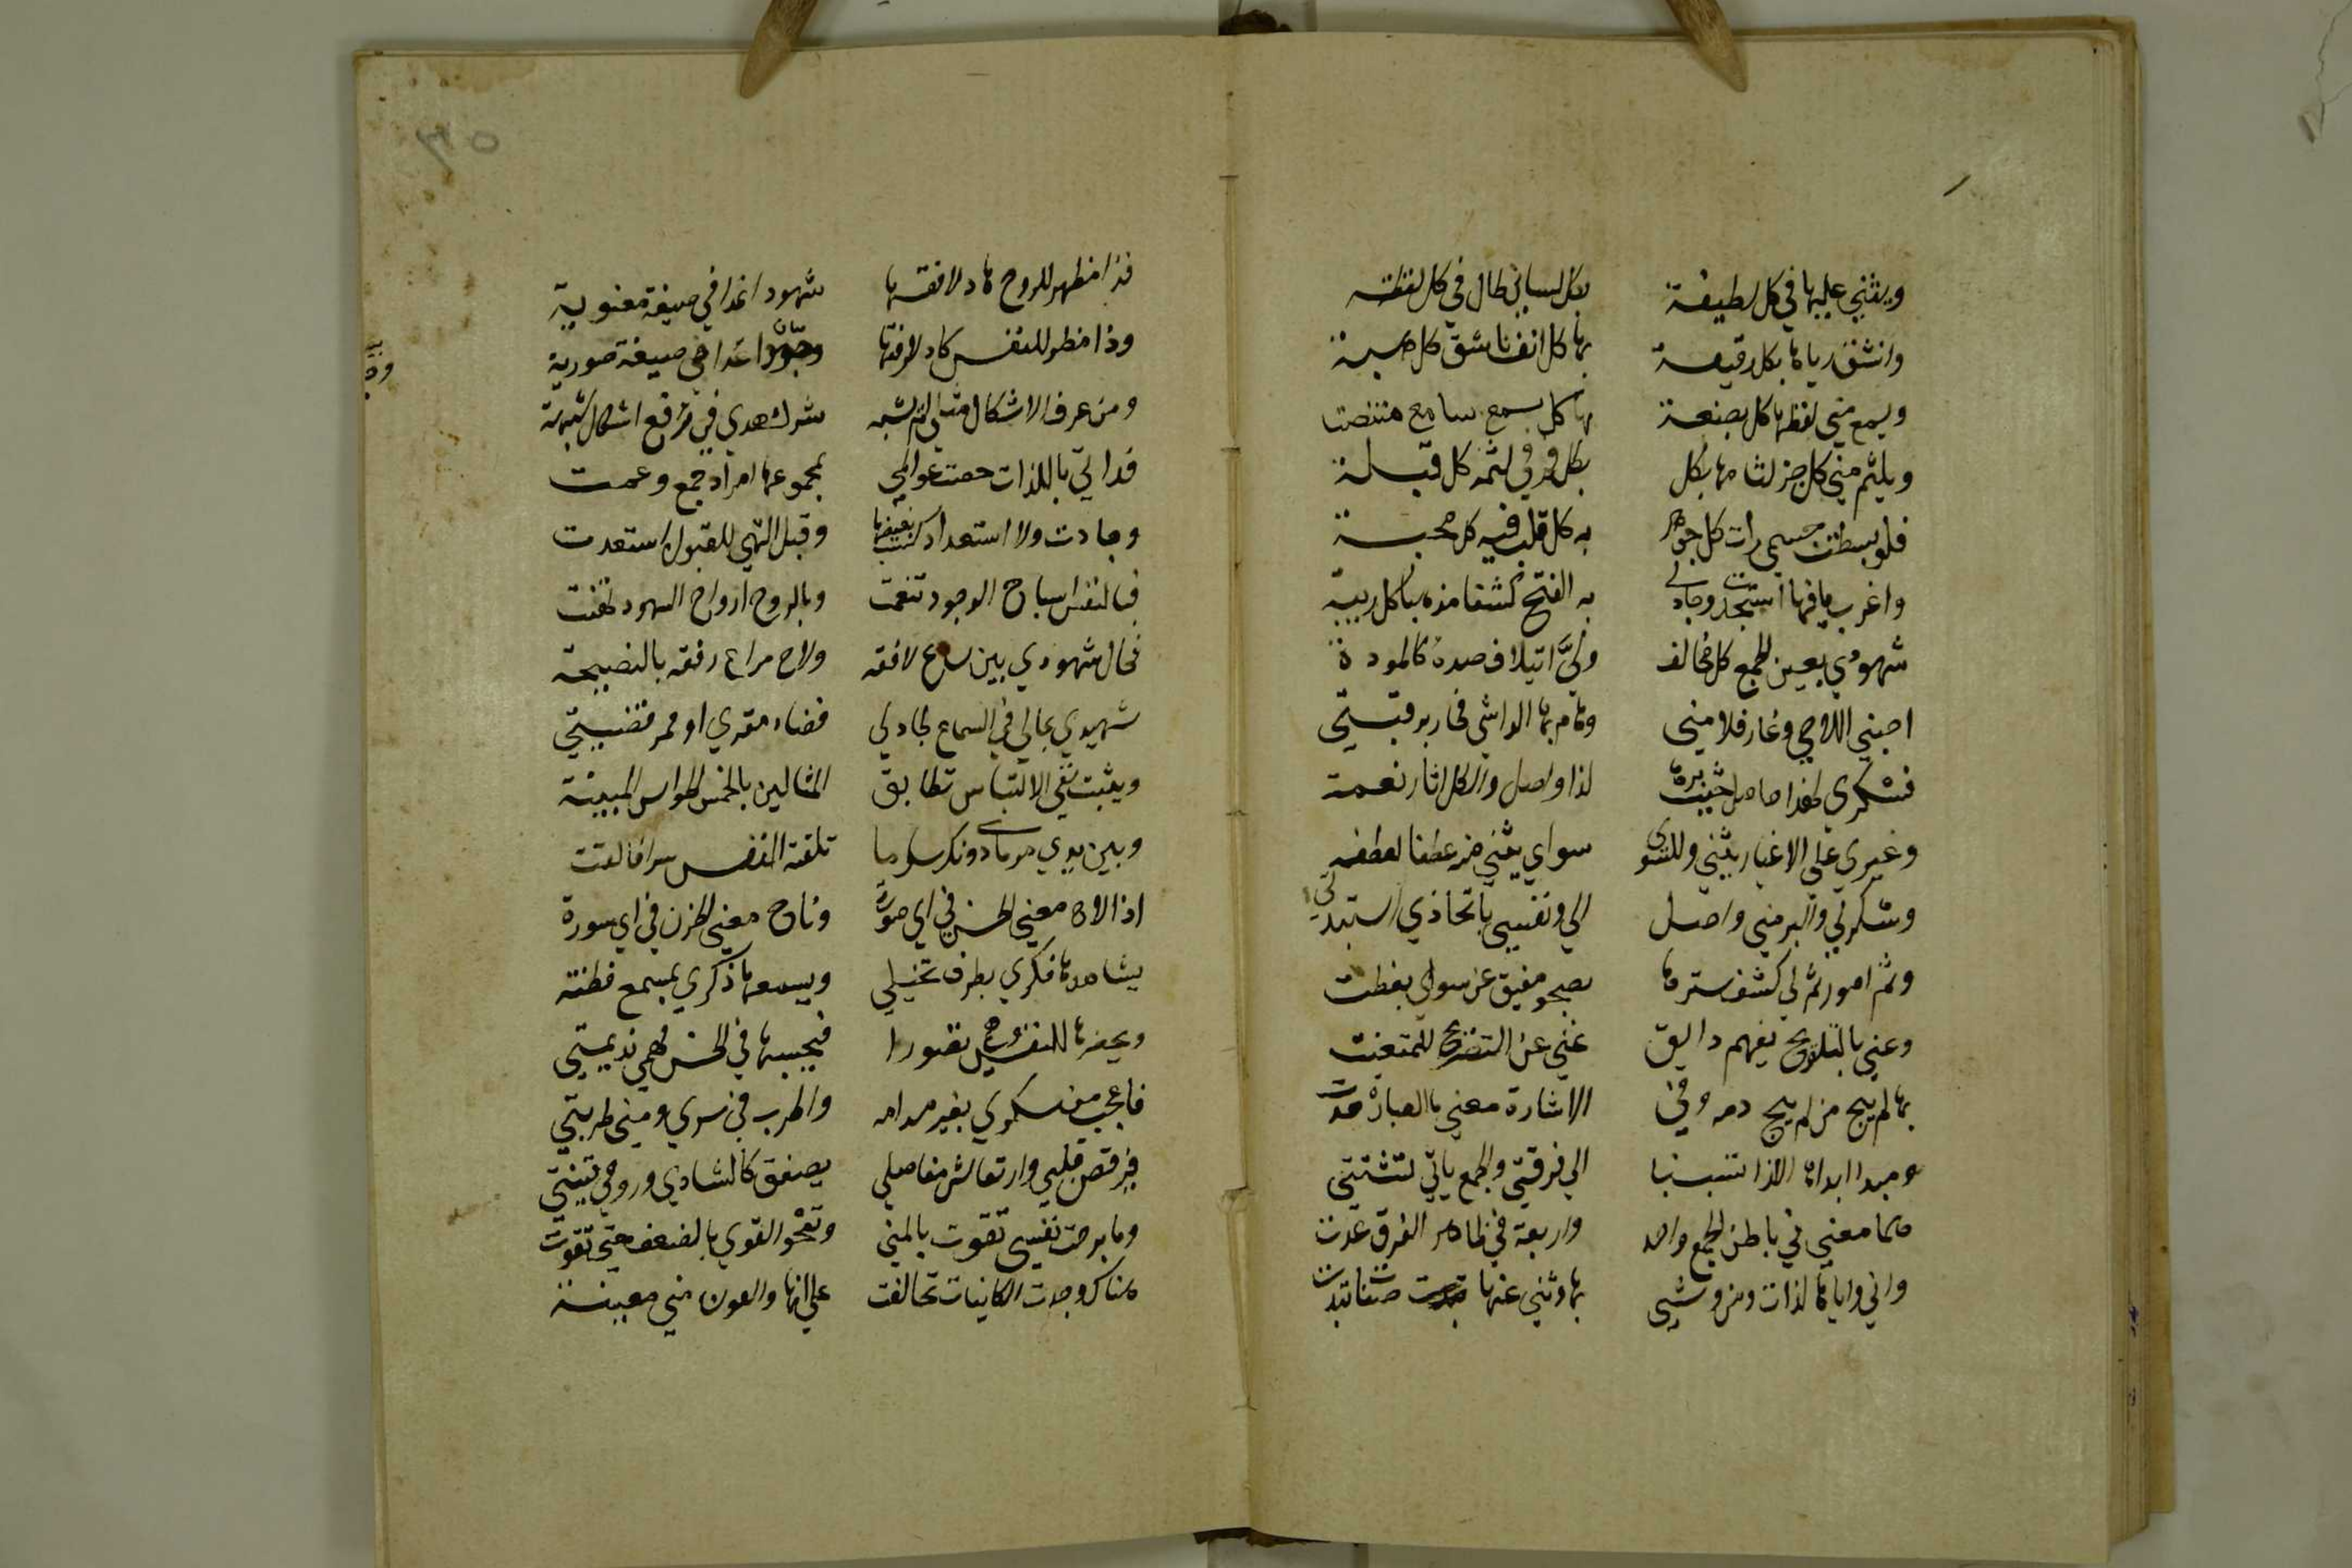 ويثني عليها في كل لطيفة بكل لسان طال في كل لفظة
وانشق رياها بكل رقيقة بها كل انف ناشق كل هبة
ويسمع مني لفظها كل بضعة بها كل سمع سامع متنصت
ويلثم مني كل جز لثامها بكل فم في لثمه كل قبلة
فلو بسطت جسمي رات كل جوهر به كل قلب فيه كل محبة
واغرب ما فيها استجدت وجاد لي به الفتح كشفا مذهبا كل ريبة
شهودي بعين الجمع كل مخالف ولي ائتلاف صده كالمودة
احبني اللاحي وغار فلامني وهام بها الواشي فجار برقبتي
فشكري لهذا حاصل حيث برها لذا واصل والكل اثار نعمت
وغيري على الاغيار يثني وللسوى سواي يثني منه عطفا لعطفه
وشكري لي والبر مني واصل الي ونفسي باتحادي استبدت
وثم امور تم لي كشف سترها بصحو مفيق عن سواي تغطت
وعني بالتلويح يفهم ذايق غني عن التصريح للمتعنت
بها لم يبح من لم يبح دمه وفي الاشارة معنى ما العبارة حدت
ومبدا ابداها اللذا تسببا الي فرقتي والجمع يابي تشتتي
هما معنى في باطن الجمع واحد واربعة في ظاهر الفرق عدت
واني واياها لذات ومن وشى بها وثنى عنها صفات تبدت
٣٥
فذا مظهر للروح هاد لافقها شهودا غدا في صيغة معنوية
وذا مظهر للنفس حاد لرفقها وجودا غدا في صيغة صورية
ومن عرف الاشكال مثلي لم يشبه شرك هدى في رفع اشكال شبهة
فذاتي باللذات خصت عوالمي بمجموعها امداد جمع وعمت
وجادت ولا استعداد كسب بفيضها وقبل التهي للقبول استعدت
فبالنفس اشباح الوجود تنعمت وبالروح ارواح الشهود تهنت
فحال شهودي بين ساع لافقه ولاح مراع رفقه بالنصيحة
شهيدي بحالي في السماع لجاذبي قضاء مقري او ممر قضيتي
ويثبت نفي الالتباس تطابق المثالين بالخمس الحواس المبينة
وبين يدي مرماي دونك سر ما تلقته النفس سرا فالقت
اذا لاح معنى الحسن في اي صورة وناح معنى الحزن في اي سورة
يشاهدها فكري بطرف تخيلي ويسمعها ذكري بمسمع فطنته
ويحضرها للنفس وهمي تصورا فيحسبها في الحس فهمي نديمتي
فاعجب من سكري بغير مدامه واطرب في سري ومني طربتي
فيرقص قلبي وارتعاش مفاصلي يصفق كالشادي وروحي قينتي
وما برحت نفسي تقوت بالمنى وتمحو القوى بالضعف حتى تقوت
هناك وجدت الكاينات تحالفت على انها والعون مني معينة